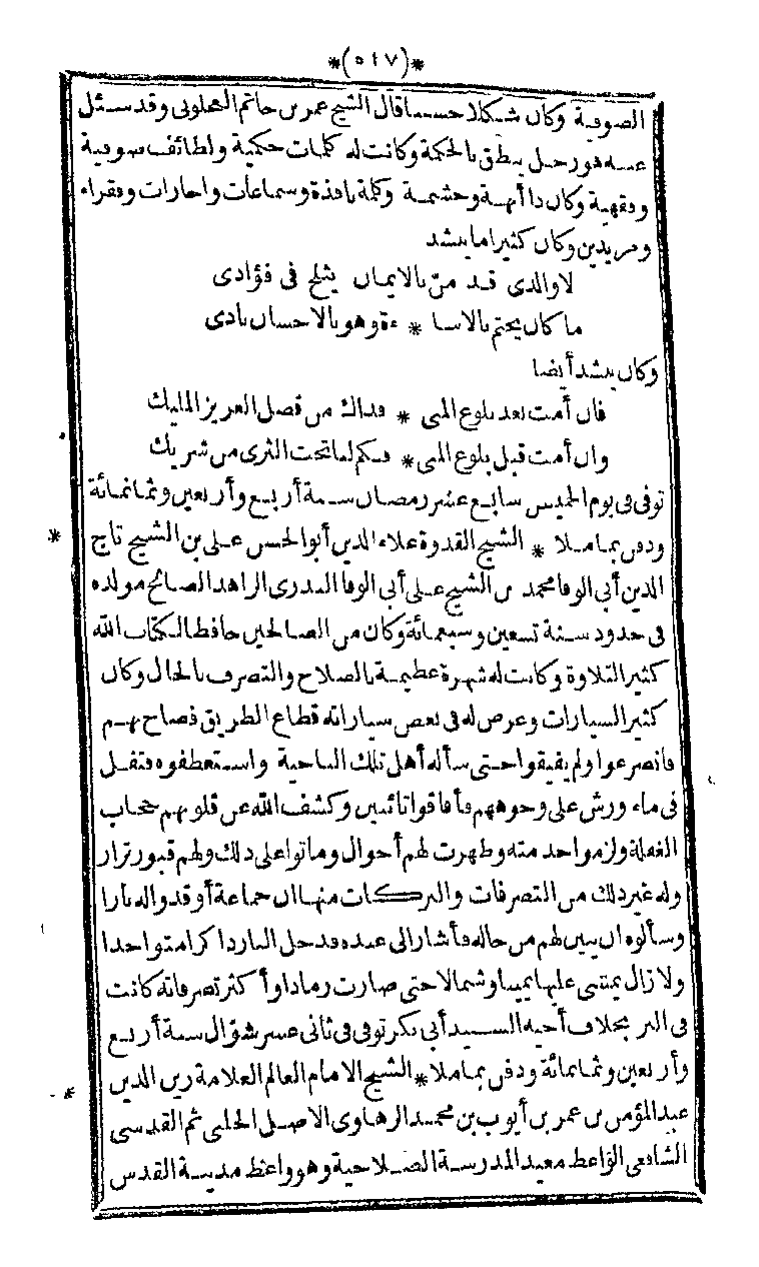 *(٥١٧)*
الصوفية وكان شكلا حسنا قال الشيخ عمر بن حاتم العجلونى وقد سئل
عنه هو رجل ينطق بالحكمة وكانت له كلمات حكمية ولطائف صوفية
وفقهية وكان ذا أبهة وحشمة وكلمة نافذة وسماعات واجازات وفقراء
ومريدين وكان كثيرا ما ينشد
لا والذى قد منّ بالايمان يثلج فى فؤادى
ما كان يختم بالاسا * ءة وهو بالاحسان بادى
وكان ينشد أيضا
فان أمت بعد بلوغ المنى * فذاك من فضل العزيز المليك
وان أمت قبل بلوغ المنى * فكم لنا تحت الثرى من شريك
توفى فى يوم الخميس سابع عشر رمضان سنة أربع وأربعين وثمانمائة
ودفن بماملا * الشيخ القدوة علاء الدين أبو الحسن على بن الشيخ تاج
الدين أبى الوفا محمد بن الشيخ على أبى الوفا البدرى الزاهد الصالح مولده
فى حدود سنة تسعين وسبعمائة وكان من الصالحين حافظا لكتاب الله
كثير التلاوة وكانت له شهرة عظيمة بالصلاح والتصرف بالحال وكان
كثير السيارات وعرض له فى بعض سياراته قطاع الطريق فصاح بهم
فانصرعوا ولم يفيقوا حتى سأله أهل تلك الناحية واستعطفوه فتفل
فى ماء ورش على وجوههم فأفاقوا تائبين وكشف الله عن قلوبهم حجاب
الغفلة ولزموا خدمته وظهرت لهم أحوال وماتوا على ذلك ولهم قبور تزار
وله غير ذلك من التصرفات والبركات منها ان جماعة أوقدوا له نارا
وسألوه ان يبين لهم من حاله فأشار الى عبده فدخل النار ذاكرا متواجدا
ولا زال يمشى عليها يمينا وشمالا حتى صارت رمادا وأكثر تصرفاته كانت
فى البر بخلاف أخيه السيد أبى بكر توفى فى ثانى عشر شوّال سنة أربع
وأربعين وثمانمائة ودفن بماملا * الشيخ الامام العالم العلامة زين الدين
عبد المؤمن بن عمر بن أيوب بن محمد الرهاوى الاصل الحلبى ثم القدسى
الشافعى الواعظ معيد المدرسة الصلاحية وهو واعظ مدينة القدس